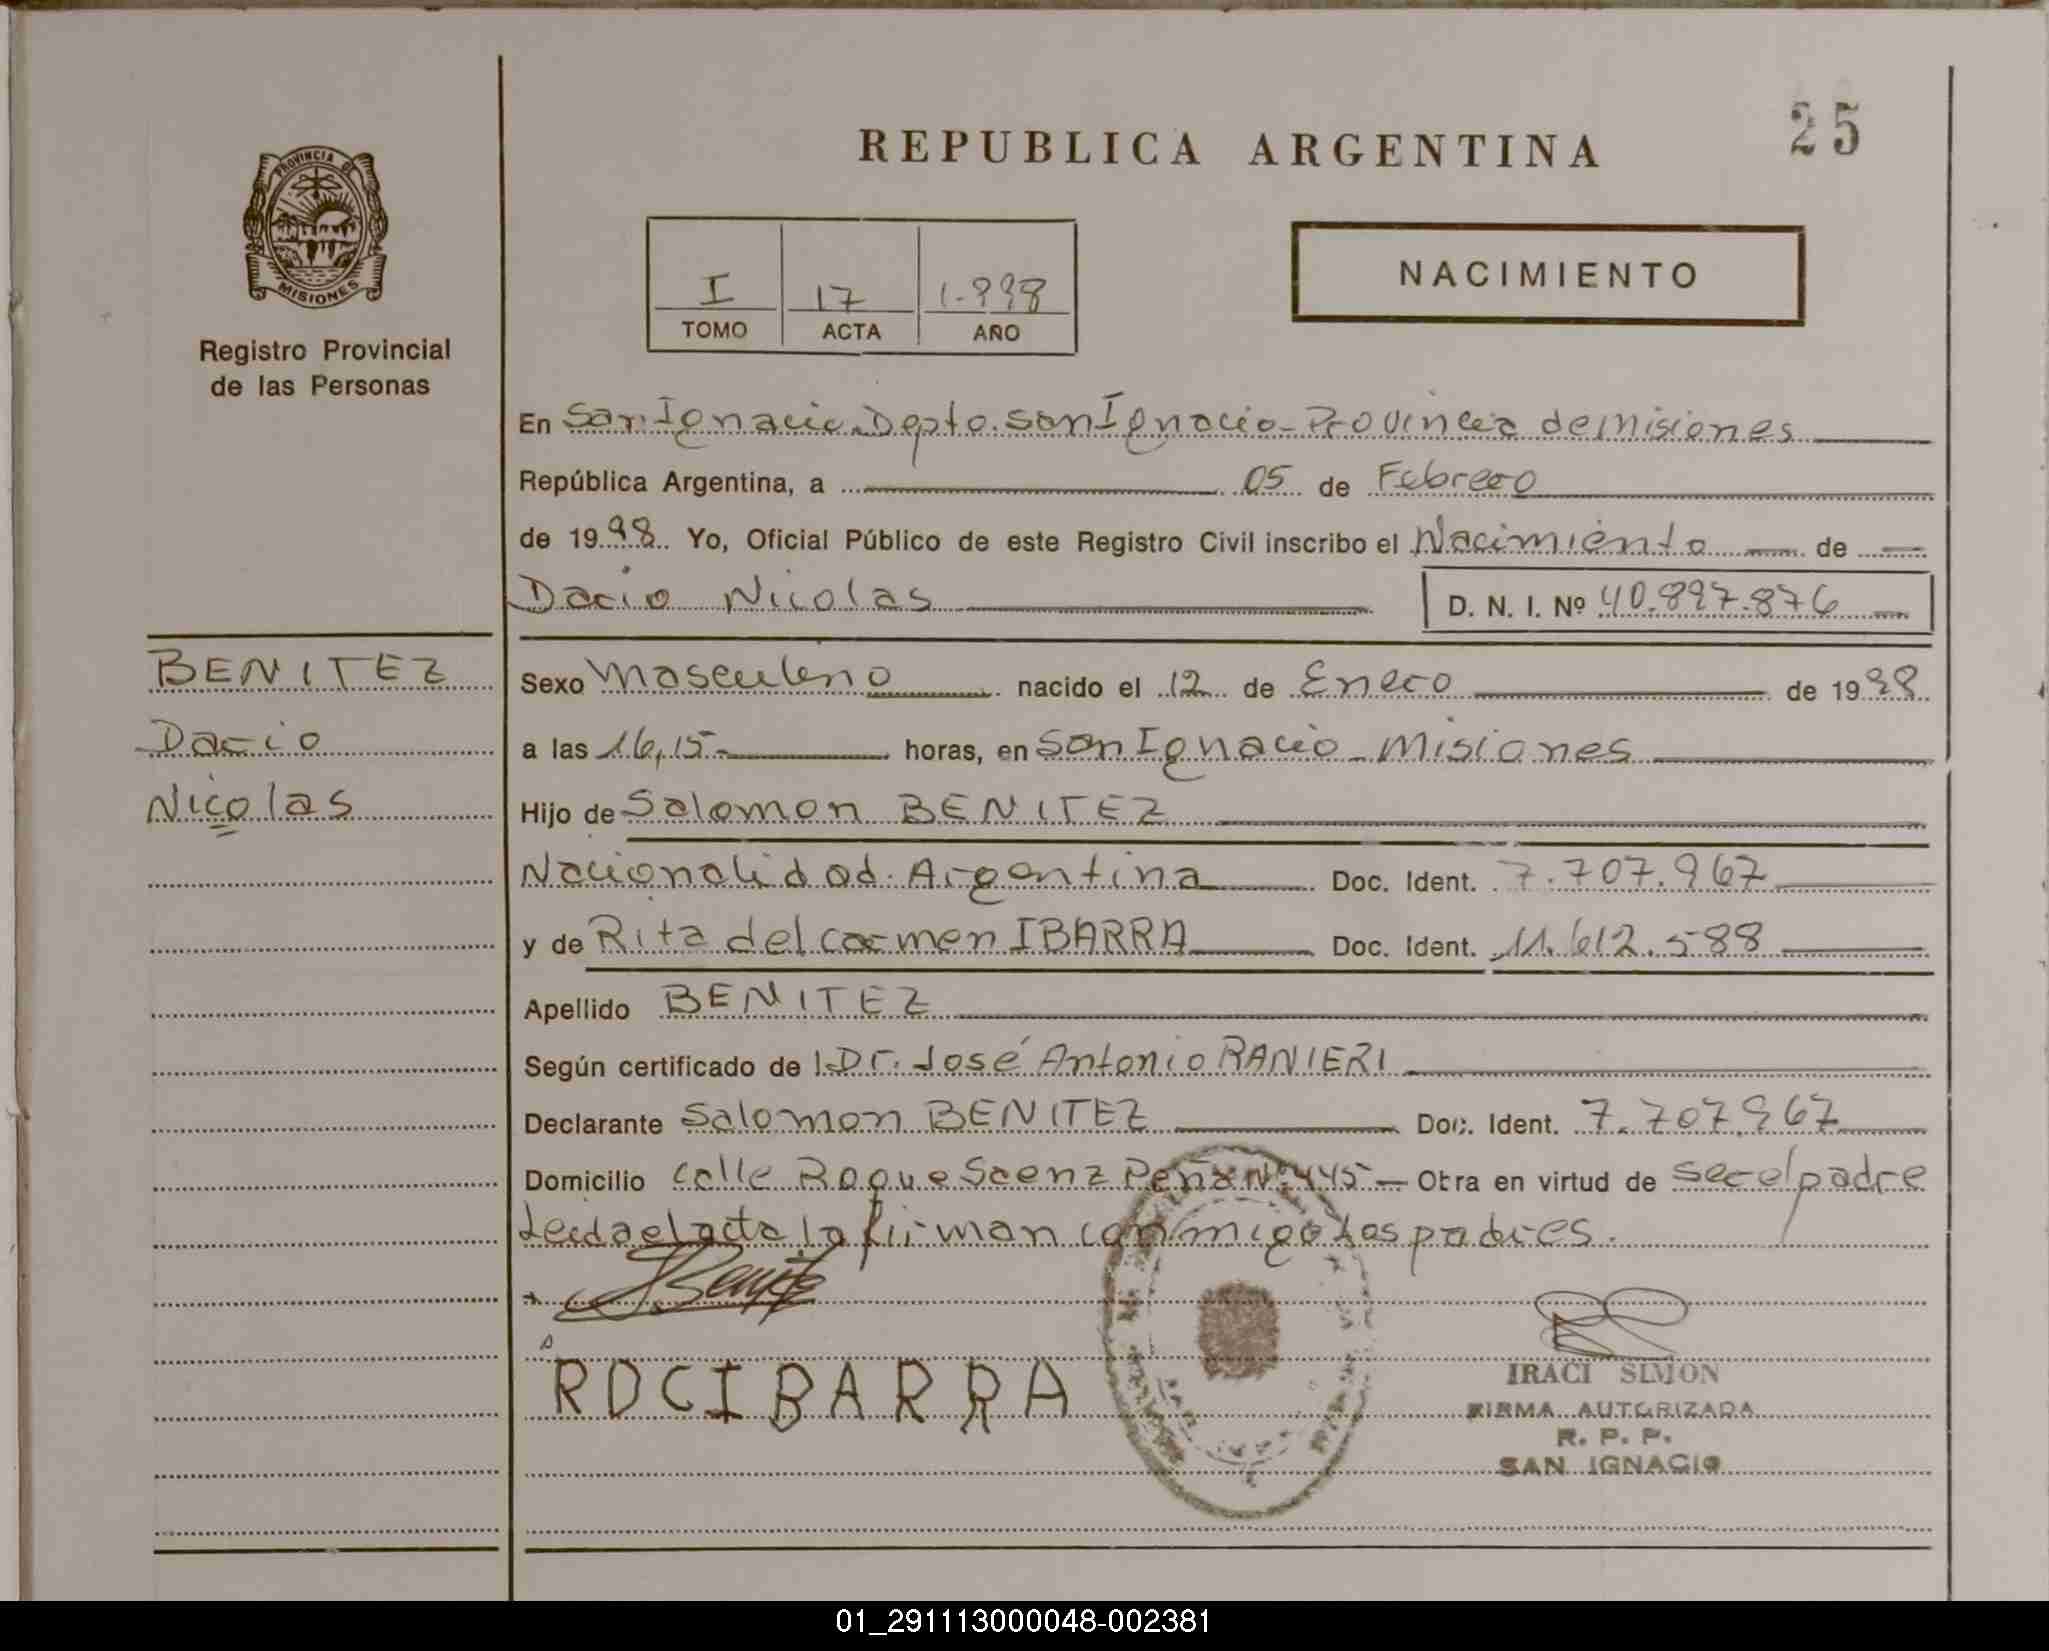 25
REPUBLICA ARGENTINA
PROVINCIA DE
MISIONES
Registro Provincial
de las Personas
NACIMIENTO
I 17 1.998
TOMO ACTA AÑO
En San Ignacio Depto. San Ignacio - Provincia de Misiones
República Argentina, a 05 de Febrero
de 1998 Yo, Oficial Público de este Registro Civil inscribo el Nacimiento de
Dario Nicolas D. N. I. Nº 40.897.876
BENITEZ
Dario
Nicolas
Sexo Masculino nacido el 12 de Enero de 1998
a las 16,15 horas, en San Ignacio - Misiones
Hijo de Salomon BENITEZ
Nacionalidad Argentina Doc. Ident. 7.707.967
y de Rita del Carmen IBARRA Doc. Ident. 11.612.588
Apellido BENITEZ
Según certificado de Dr. José Antonio RANIERI
Declarante Salomon BENITEZ Doc. Ident. 7.707.967
Domicilio calle Roque Saenz Peña Nº 445 - Obra en virtud de ser el padre
Leida el acta la firman conmigo los padres.
RDCIBARRA
IRACI SIMON
FIRMA AUTORIZADA
R. P. P.
SAN IGNACIO
01_291113000048-002381